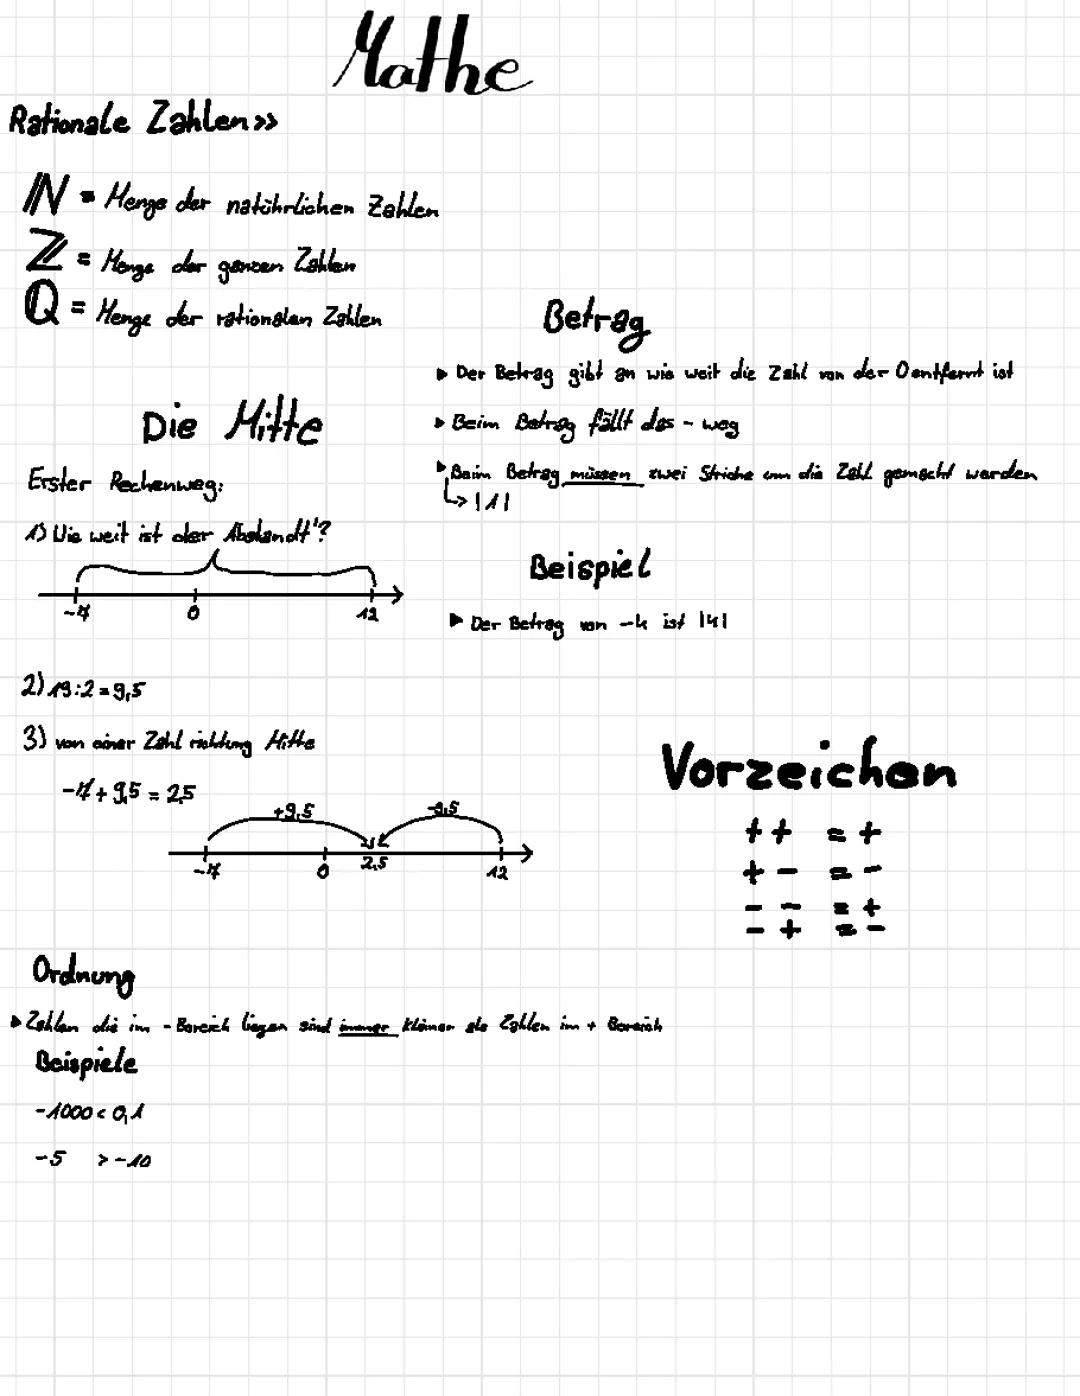 Mathe
Rationale Zahlen >>
ℕ = Menge der natührlichen Zahlen
ℤ = Menge der ganzen Zahlen
ℚ = Menge der rationalen Zahlen
Die Mitte
Erster Rechenweg:
1) Wie weit ist der Abstandt?
-7 0 12
2) 19:2 = 9,5
3) von einer Zahl richtung Mitte
-7 + 9,5 = 2,5
+9,5 -9,5
-7 0 2,5 12
Ordnung
▸ Zahlen die im - Bereich liegen sind immer kleiner als Zahlen im + Bereich
Beispiele
-1000 < 0,1
-5 > -10
Betrag
▸ Der Betrag gibt an wie weit die Zahl von der 0 entfernt ist
▸ Beim Betrag fällt das - weg
▸ Beim Betrag müssen zwei Striche um die Zahl gemacht werden
↳ |1|
Beispiel
▸ Der Betrag von -4 ist |4|
Vorzeichen
+ + = +
+ - = -
- - = +
- + = -